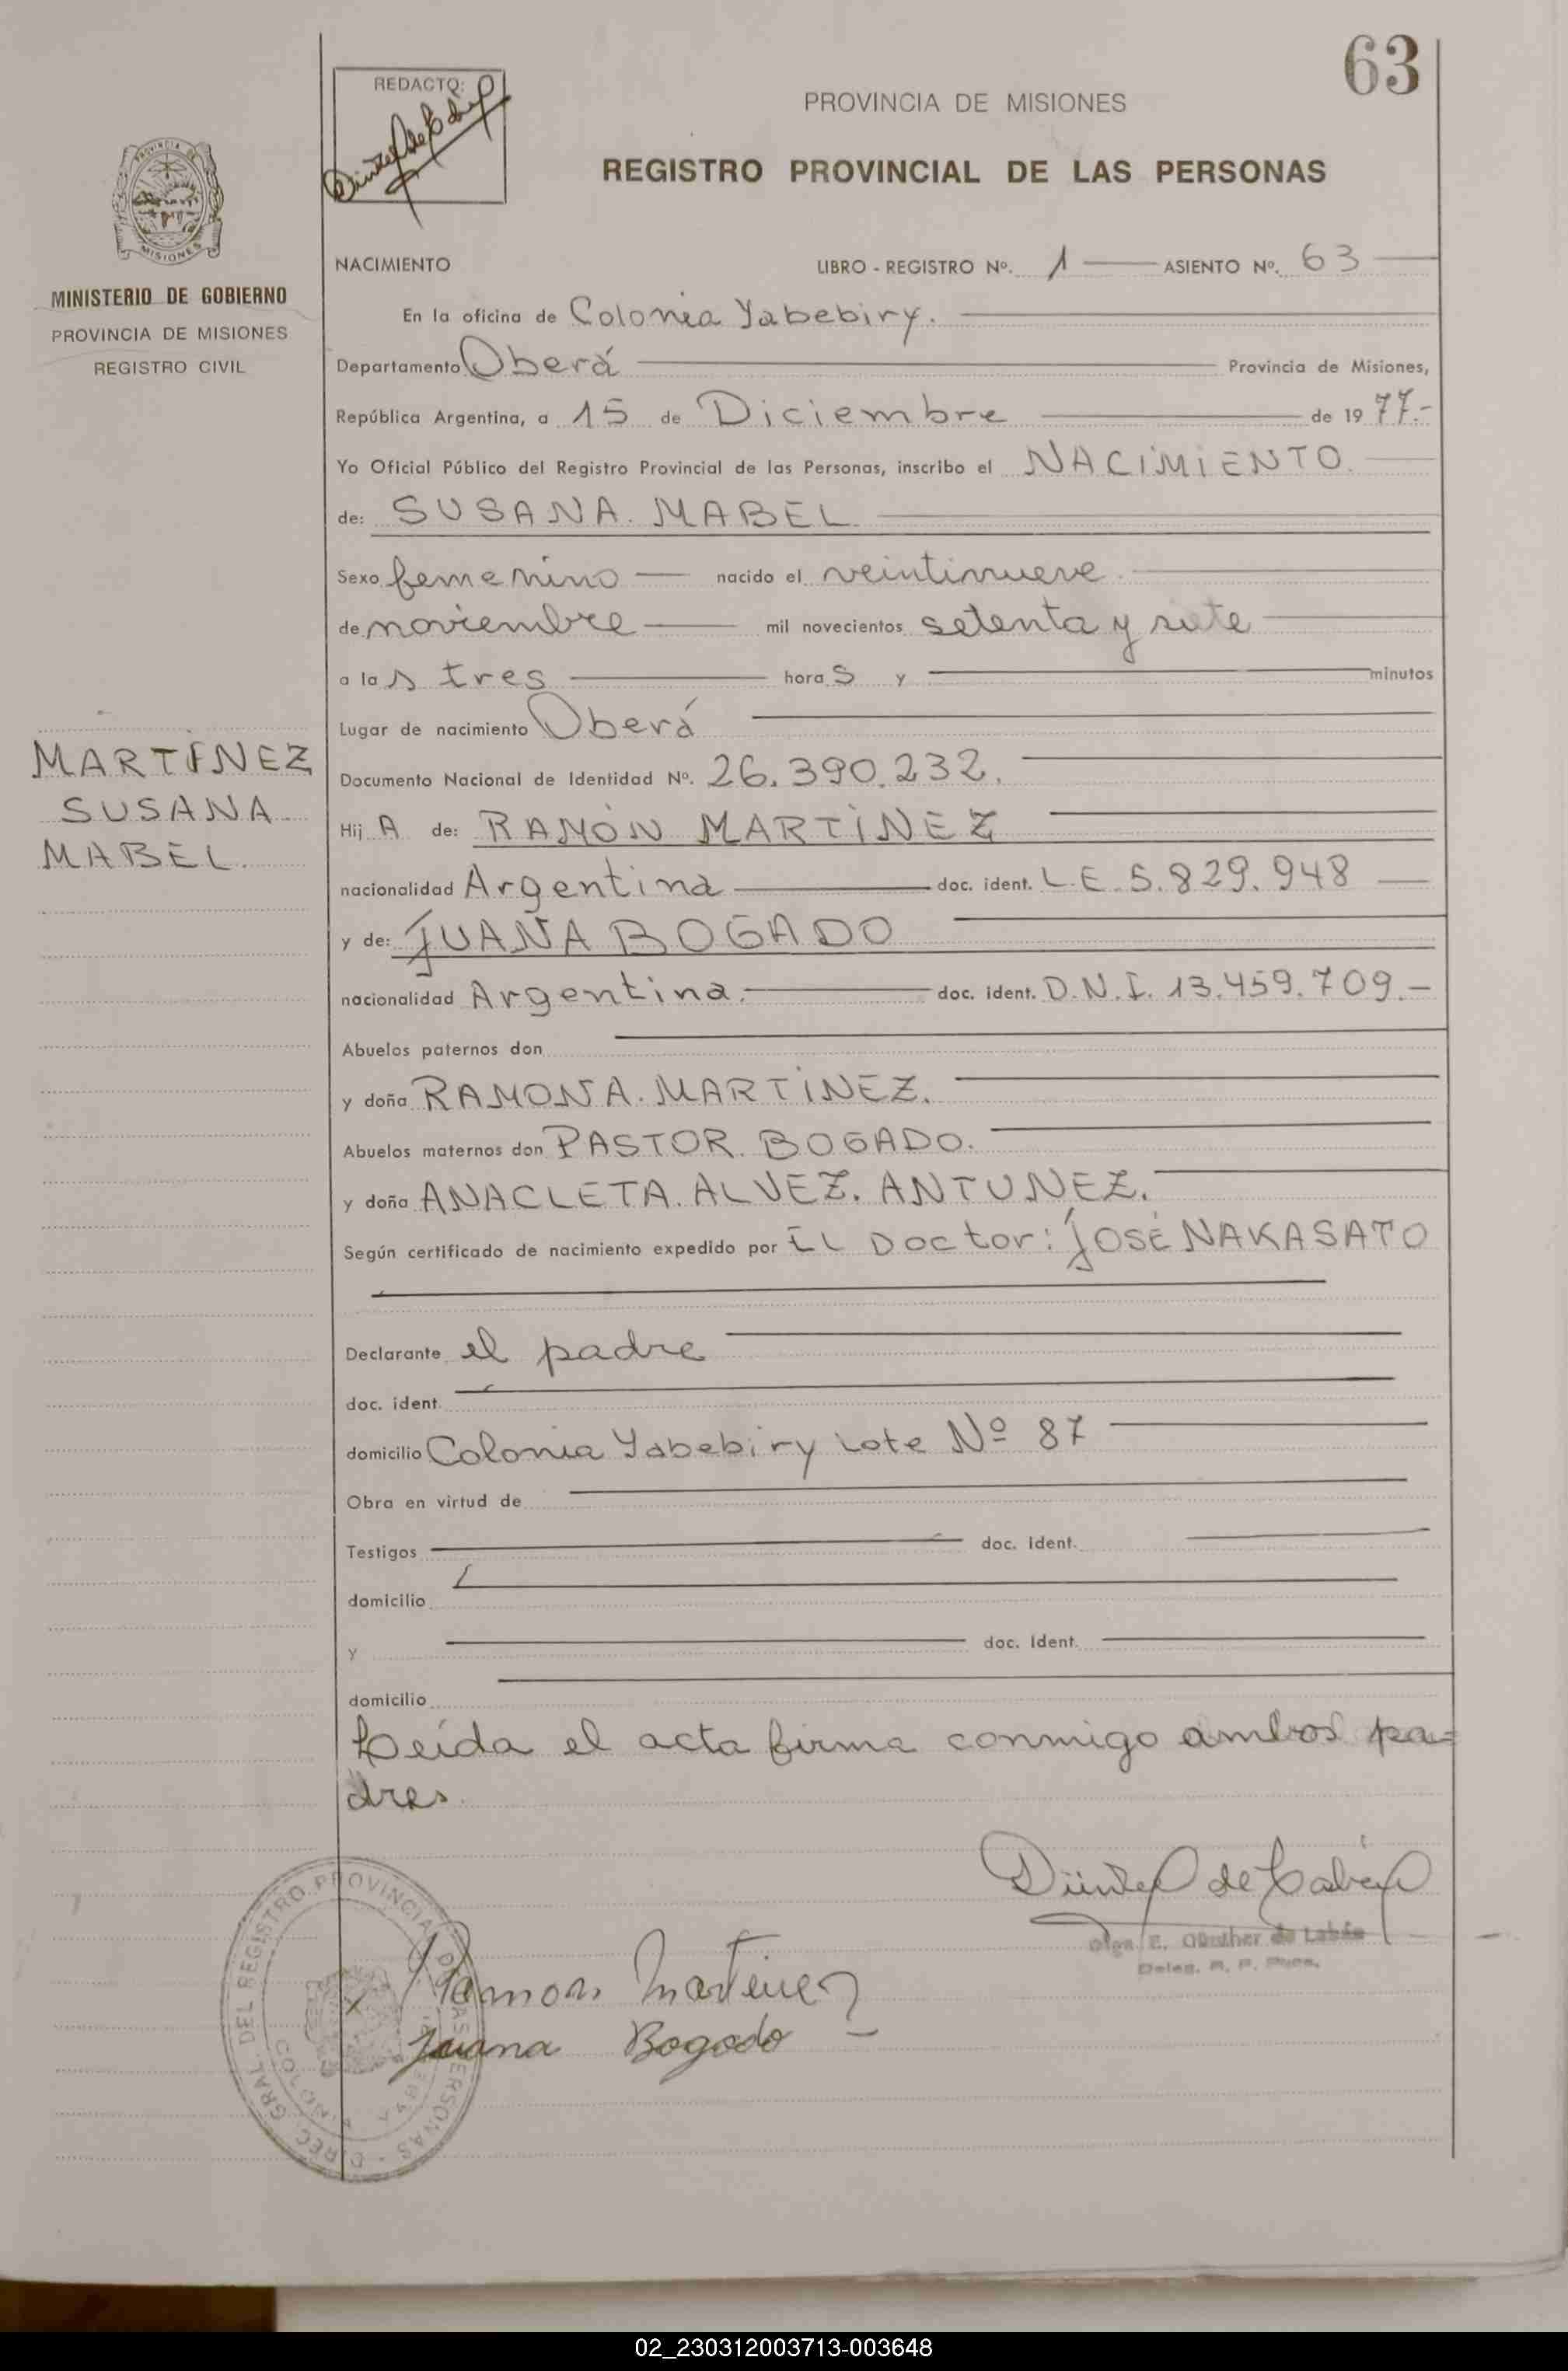 63
REDACTO:
PROVINCIA DE MISIONES
REGISTRO PROVINCIAL DE LAS PERSONAS
PROVINCIA DE
MISIONES
MINISTERIO DE GOBIERNO
PROVINCIA DE MISIONES
REGISTRO CIVIL
NACIMIENTO LIBRO - REGISTRO Nº. 1 ASIENTO Nº. 63
En la oficina de Colonia Yabebiry.
Departamento Oberá Provincia de Misiones,
República Argentina, a 15 de Diciembre de 1977.-
Yo Oficial Público del Registro Provincial de las Personas, inscribo el NACIMIENTO.
de: SUSANA. MABEL
Sexo femenino nacido el veintinueve
de noviembre mil novecientos setenta y siete
a las tres horas y minutos
Lugar de nacimiento Oberá
MARTÍNEZ
SUSANA
MABEL.
Documento Nacional de Identidad Nº. 26.390.232.
Hij A de: RAMÓN MARTÍNEZ
nacionalidad Argentina doc. ident. L.E. 5.829.948
y de: JUANA BOGADO
nacionalidad Argentina. doc. ident. D.N.I. 13.459.709.-
Abuelos paternos don
y doña RAMONA. MARTÍNEZ.
Abuelos maternos don PASTOR. BOGADO.
y doña ANACLETA. ALVEZ. ANTUNEZ.
Según certificado de nacimiento expedido por EL Doctor: JOSÉ NAKASATO
Declarante el padre
doc. ident.
domicilio Colonia Yabebiry Lote Nº 87
Obra en virtud de
Testigos doc. ident.
domicilio
y doc. Ident.
domicilio
Leída el acta firma conmigo ambos pa=
dres.
Olga E. Günther de
Deleg. R. P. Pers.
DIREC. GRAL. DEL REGISTRO PROVINCIAL DE LAS PERSONAS
COLONIA
Ramon Martinez
Juana Bogado
02_230312003713-003648